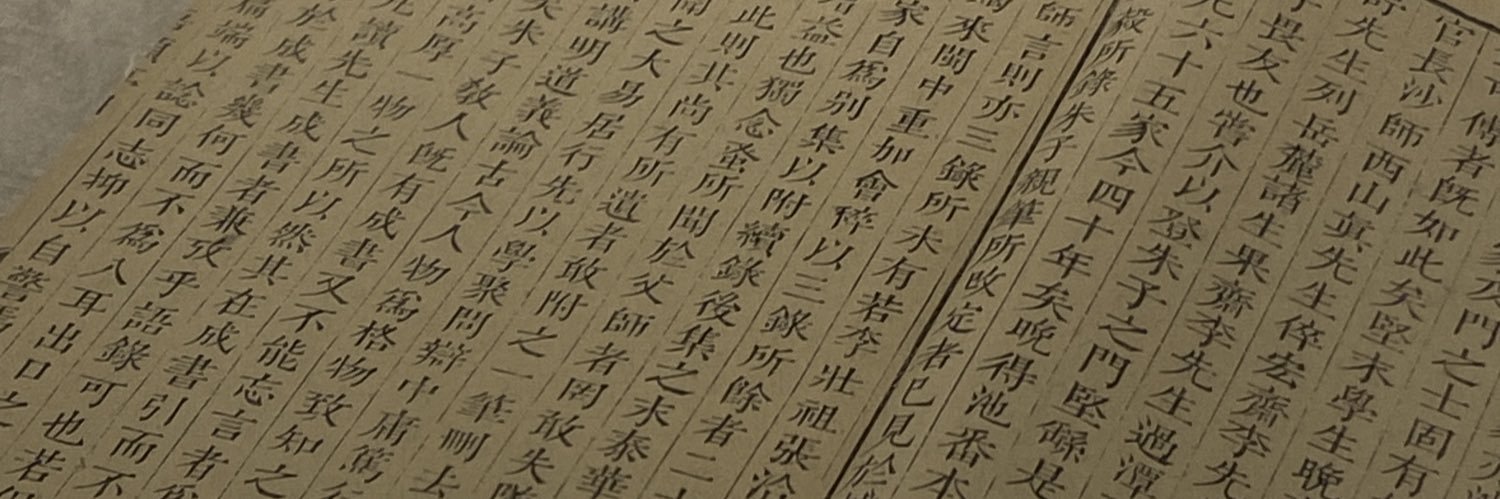 傳者既如此矣堅末學生晚
官長沙師西山真先生倅宏齋李先
先生列岳麓諸生果齋李先生過潭
畏友也嘗介以登朱子之門堅繇是
六十五家今四十年矣晚得池番本
所錄朱子親筆所改定者已見於
師言則亦三錄所未有若李壯祖張洽
來閩中重加會稡以三錄所餘者二
家自為別集以附續錄後集之末泰華
益也獨念蚤所聞於父師者罔敢失
此則其尚有所遺者敢附之一筆刪去
之大易居行先以學聚問辯中庸篤行
講明道義論古今人物為格物致知之
矣朱子敎人既有成書又不能忘言者
高厚一物之所以然其在成書引而不
讀先生成書者兼攷乎語錄可也若
於成書幾何而不為入耳出口之
端以諗同志抑以自警